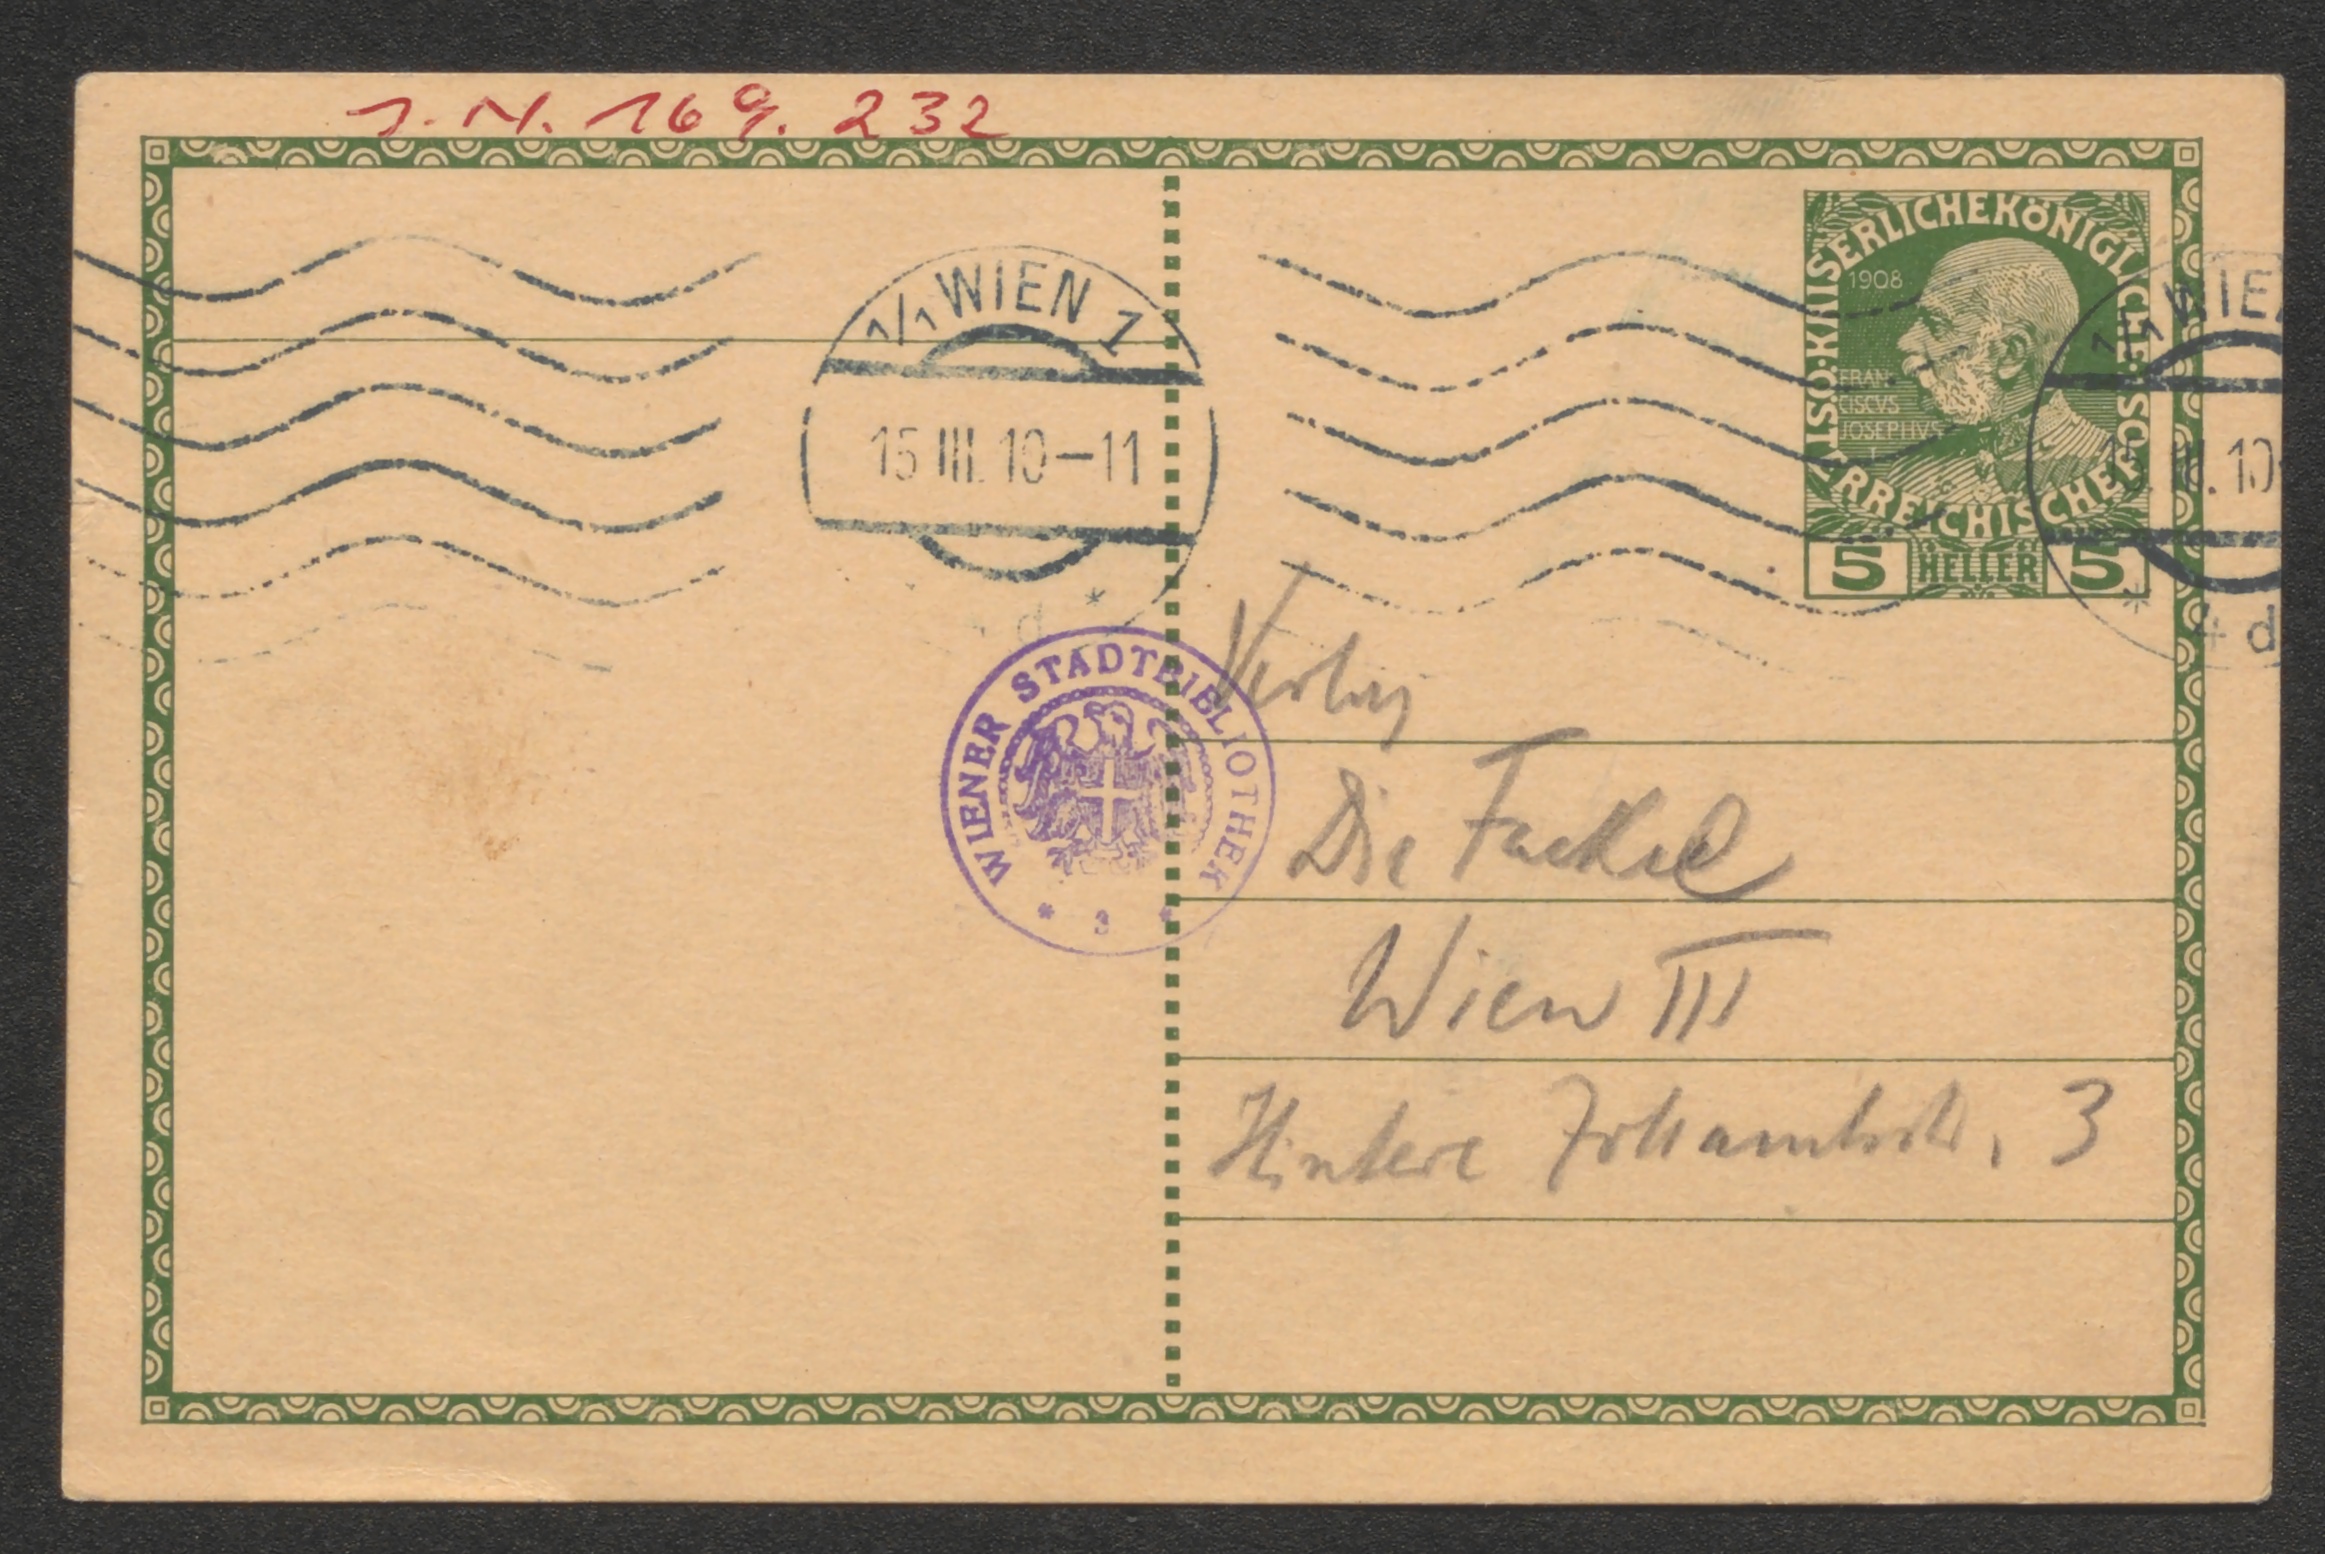 J. N. 169. 232
KAISERLICHE KÖNIGLICHE ÖSTERREICHISCHE POST
1908
FRAN
CISCVS
IOSEPHVS
I
5 HELLER 5
1/1 WIEN 1
15 III. 10-11
d *
1/1 WIE
III. 10
* 4 d
WIENER STADTBIBLIOTHEK
* 3 *
Verlag
Die Fackel
Wien III
Hintere Zollamtsstr. 3